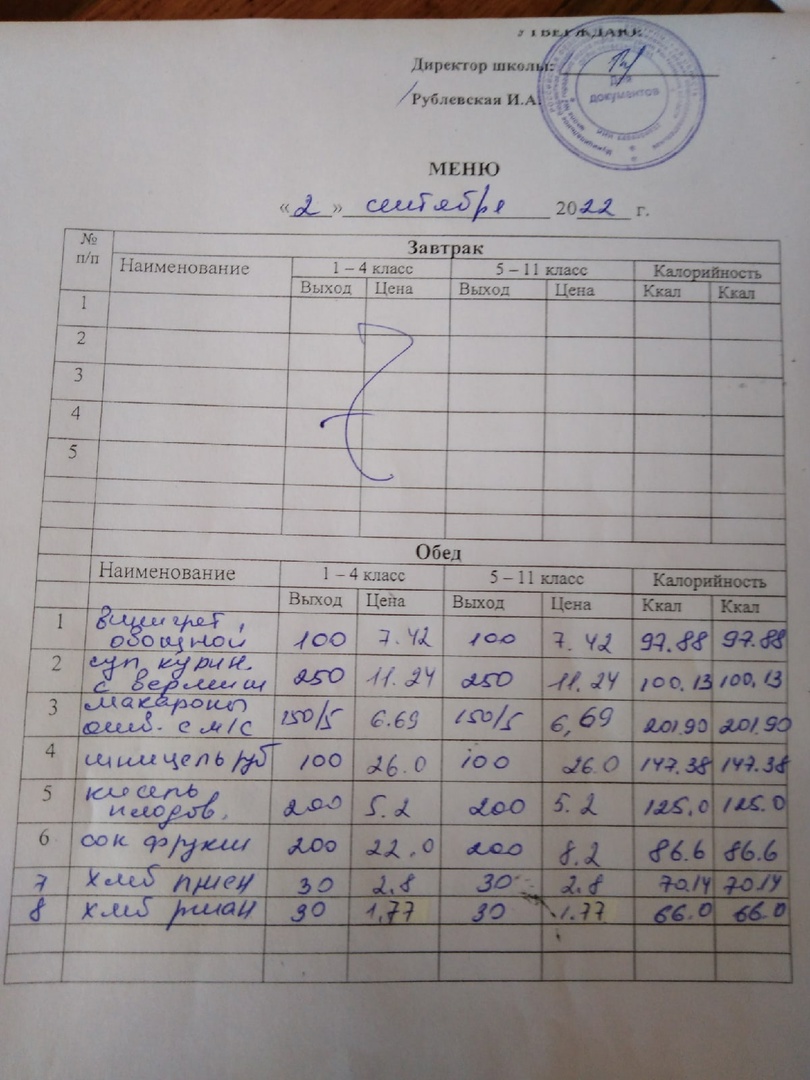 УТВЕРЖДАЮ:
Директор школы:
Рублевская И.А.
Для
документов
МЕНЮ
«2» сентября 2022 г.
№ п/п Завтрак
Наименование 1 – 4 класс 5 – 11 класс Калорийность
Выход Цена Выход Цена Ккал Ккал
1
2
3
4
5
Обед
Наименование 1 – 4 класс 5 – 11 класс Калорийность
Выход Цена Выход Цена Ккал Ккал
1 винигрет,
овощной 100 7.42 100 7.42 97.88 97.88
2 суп курин.
с вермиш 250 11.24 250 11.24 100.13 100,13
3 макароны
отв. с м/с 150/5 6.69 150/5 6,69 201.90 201.90
4 шницель руб 100 26.0 100 26.0 147.38 147.38
5 кисель
плодов. 200 5.2 200 5.2 125.0 125.0
6 сок фрукт 200 22.0 200 8.2 86.6 86.6
7 хлеб пшен 30 2.8 30 2.8 70.14 70.14
8 хлеб ржан 30 1.77 30 1.77 66.0 66.0